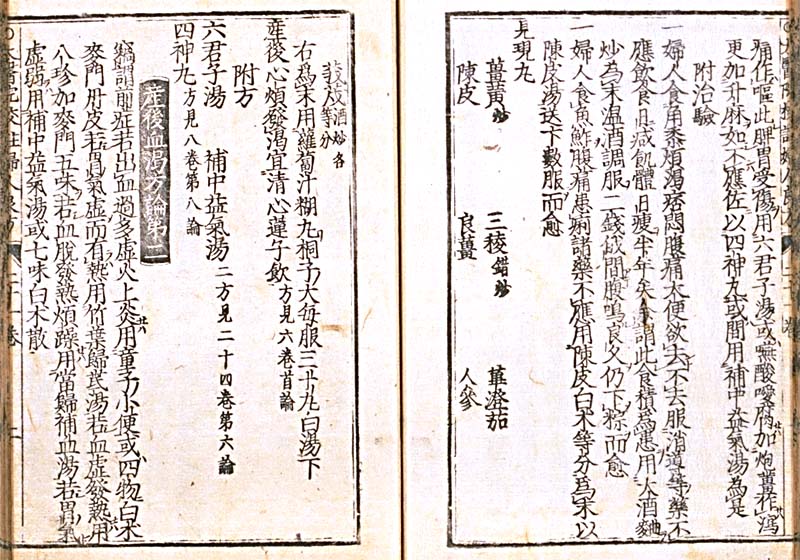 痛作嘔此脾胃受傷用六君子湯或嘸酸噯腐加炮薑作瀉
更加升麻如不應佐以四神丸或間用補中益氣湯為是
附治驗
一婦人食角黍煩渴痞悶腹痛大便欲去不去服消導等藥不
應飲食日減飢體日瘦半年矣謂此食積為患用大酒麯
炒為末温酒調服二錢俄間腹鳴良久仍下粽而愈
一婦人食魚鮓腹痛患痢諸藥不應用陳皮白朮等分為末以
陳皮湯送下數服而愈
見現丸
薑黃炒 三稜錯炒 蓽澄茄
陳皮 良薑 人參
莪茂酒炒各等分
右為末用蘿蔔汁糊丸桐子大每服三十丸白湯下
産後心煩發渴宜清心蓮子飲方見六卷首論
附方
六君子湯 補中益氣湯二方見二十四卷第六論
四神丸方見八卷第八論
産後血渴方論第二
竊謂前症若出血過多虛火上炎用童子小便或四物白朮
麥門丹皮若胃氣虛而有熱用竹葉歸芪湯若血虛發熱用
八珍加麥門五味若血脱發熱煩躁用當歸補血湯若胃氣
虛弱用補中益氣湯或七味白朮散